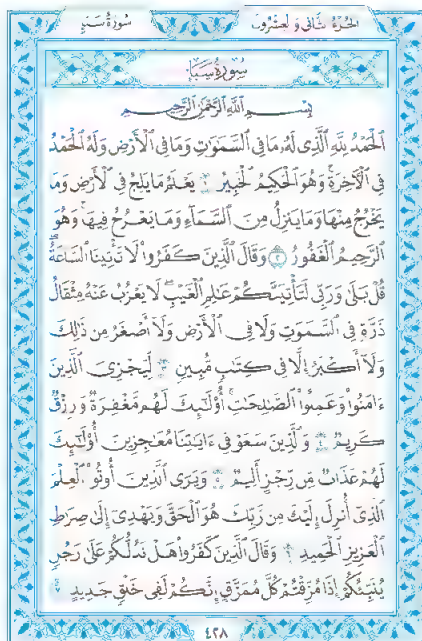 الجزء الثاني والعشرون
سورة سبإ
سورة سبإ
بسم الله الرحمن الرحيم
ٱلۡحَمۡدُ لِلَّهِ ٱلَّذِي لَهُۥ مَا فِي ٱلسَّمَٰوَٰتِ وَمَا فِي ٱلۡأَرۡضِ وَلَهُ ٱلۡحَمۡدُ
فِي ٱلۡأٓخِرَةِۚ وَهُوَ ٱلۡحَكِيمُ ٱلۡخَبِيرُ ١ يَعۡلَمُ مَا يَلِجُ فِي ٱلۡأَرۡضِ وَمَا
يَخۡرُجُ مِنۡهَا وَمَا يَنزِلُ مِنَ ٱلسَّمَآءِ وَمَا يَعۡرُجُ فِيهَاۚ وَهُوَ
ٱلرَّحِيمُ ٱلۡغَفُورُ ٢ وَقَالَ ٱلَّذِينَ كَفَرُواْ لَا تَأۡتِينَا ٱلسَّاعَةُۖ
قُلۡ بَلَىٰ وَرَبِّي لَتَأۡتِيَنَّكُمۡ عَٰلِمِ ٱلۡغَيۡبِۖ لَا يَعۡزُبُ عَنۡهُ مِثۡقَالُ
ذَرَّةٖ فِي ٱلسَّمَٰوَٰتِ وَلَا فِي ٱلۡأَرۡضِ وَلَآ أَصۡغَرُ مِن ذَٰلِكَ
وَلَآ أَكۡبَرُ إِلَّا فِي كِتَٰبٖ مُّبِينٖ ٣ لِّيَجۡزِيَ ٱلَّذِينَ
ءَامَنُواْ وَعَمِلُواْ ٱلصَّٰلِحَٰتِۚ أُوْلَٰٓئِكَ لَهُم مَّغۡفِرَةٞ وَرِزۡقٞ
كَرِيمٞ ٤ وَٱلَّذِينَ سَعَوۡ فِيٓ ءَايَٰتِنَا مُعَٰجِزِينَ أُوْلَٰٓئِكَ
لَهُمۡ عَذَابٞ مِّن رِّجۡزٍ أَلِيمٞ ٥ وَيَرَى ٱلَّذِينَ أُوتُواْ ٱلۡعِلۡمَ
ٱلَّذِيٓ أُنزِلَ إِلَيۡكَ مِن رَّبِّكَ هُوَ ٱلۡحَقَّ وَيَهۡدِيٓ إِلَىٰ صِرَٰطِ
ٱلۡعَزِيزِ ٱلۡحَمِيدِ ٦ وَقَالَ ٱلَّذِينَ كَفَرُواْ هَلۡ نَدُلُّكُمۡ عَلَىٰ رَجُلٖ
يُنَبِّئُكُمۡ إِذَا مُزِّقۡتُمۡ كُلَّ مُمَزَّقٍ إِنَّكُمۡ لَفِي خَلۡقٖ جَدِيدٍ ٧
٤٢٨